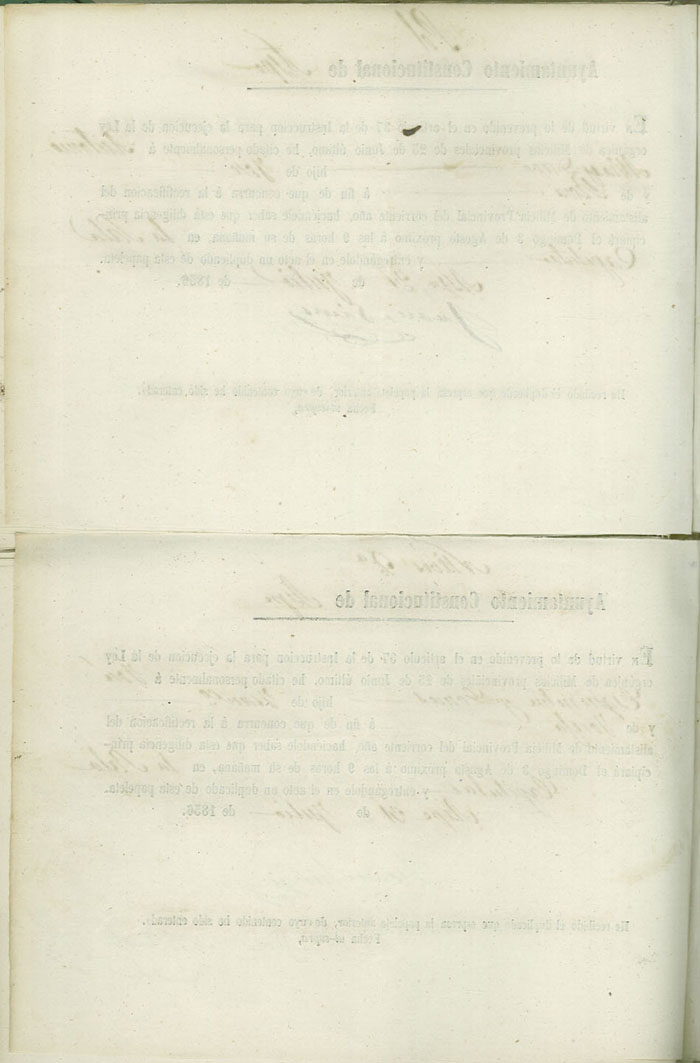 Ayuntamiento Constitucional de
EN virtud de lo prevenido en el artículo 37 de la Instruccion para la ejecucion de la Ley
orgánica de Milicias provinciales de 25 de Junio último, he citado personalmente á Antonio
hijo de José
y de á fin de que concurra á la rectificacion del
alistamiento de Milicia Provincial del corriente año, haciendole saber que esta diligencia prin-
cipiará el Domingo 3 de Agosto próximo á las 9 horas de su mañana, en la Sala
Capitular y entregándole en el acto un duplicado de esta papeleta.
de Julio de 1856.
Juan
He recibido el duplicado que espresa la papeleta anterior, de cuyo contenido he sido enterado.
Fecha ut-supra,
Ayuntamiento Constitucional de
EN virtud de lo prevenido en el artículo 37 de la Instruccion para la ejecucion de la Ley
orgánica de Milicias provinciales de 25 de Junio último, he citado personalmente á José
hijo de
y de á fin de que concurra á la rectificacion del
alistamiento de Milicia Provincial del corriente año, haciéndole saber que esta diligencia prin-
cipiará el Domingo 3 de Agosto próximo á las 9 horas de su mañana, en la Sala
Capitular y entregándole en el acto un duplicado de esta papeleta.
31 de Julio de 1856.
He recibido el duplicado que espresa la papeleta anterior, de cuyo contenido he sido enterado.
Fecha ut-supra,